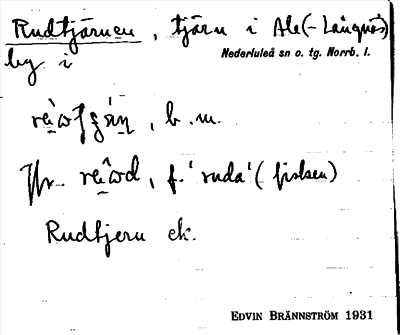 Rudtjärnen, tjärn i Ale(-Långnäs)
by i Nederluleå sn o. tg. Norrb. l.
, b. m.
Jfr , f. 'ruda' (fisken)
Rudtjern ek.
EDVIN BRÄNNSTRÖM 1931